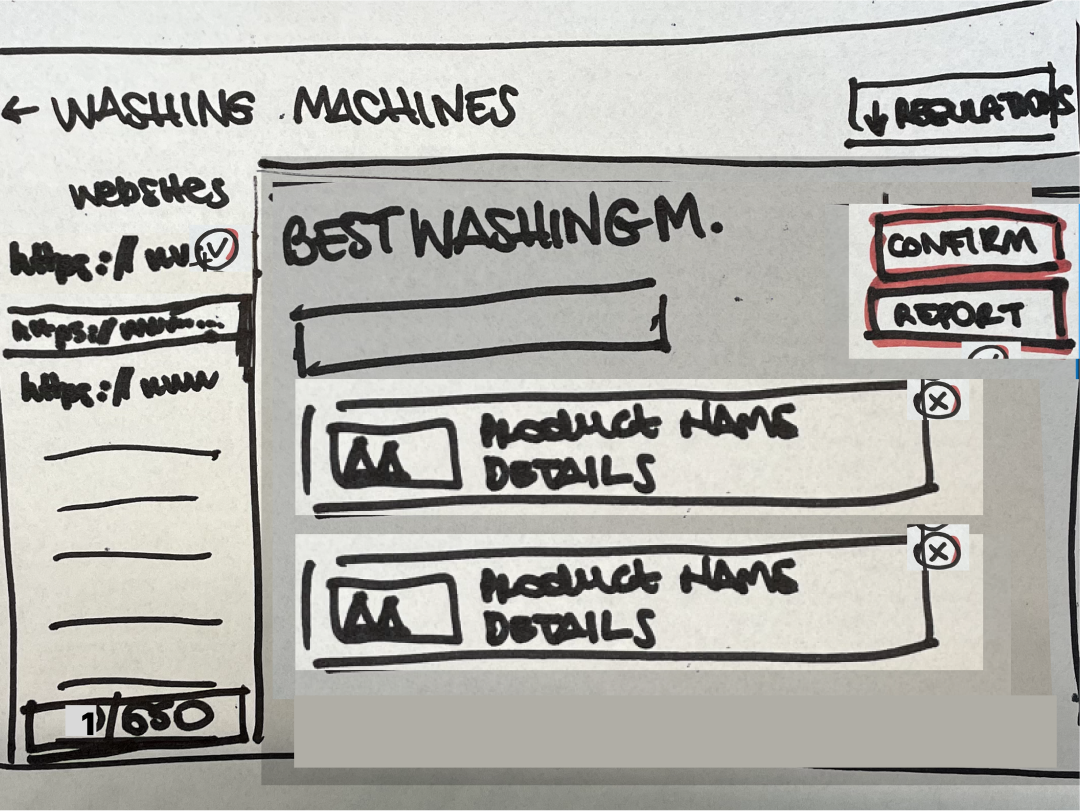 ← WASHING MACHINES
↓ REGULATIONS
websites
https://ww
https://www...
https://www
1/650
BEST WASHING M.
CONFIRM
REPORT
PRODUCT NAME
DETAILS
PRODUCT NAME
DETAILS